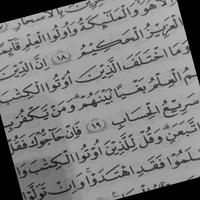 بِالْأَسْحَارِ
إِلَّا هُوَ وَالْمَلٰٓئِكَةُ وَأُولُوا الْعِلْمِ قَائِمًا
الْعَزِيزُ الْحَكِيمُ ﴿١٨﴾ إِنَّ الدِّينَ
وَمَا اخْتَلَفَ الَّذِينَ أُوتُوا الْكِتٰبَ
مُ الْعِلْمُ بَغْيًا بَيْنَهُمْ وَمَنْ يَكْفُرْ
سَرِيعُ الْحِسَابِ ﴿١٩﴾ فَإِنْ حَاجُّوكَ فَقُلْ
اتَّبَعَنِ وَقُلْ لِلَّذِينَ أُوتُوا الْكِتٰبَ وَ
سْلَمُوا فَقَدِ اهْتَدَوْا وَإِنْ تَوَلَّوْا